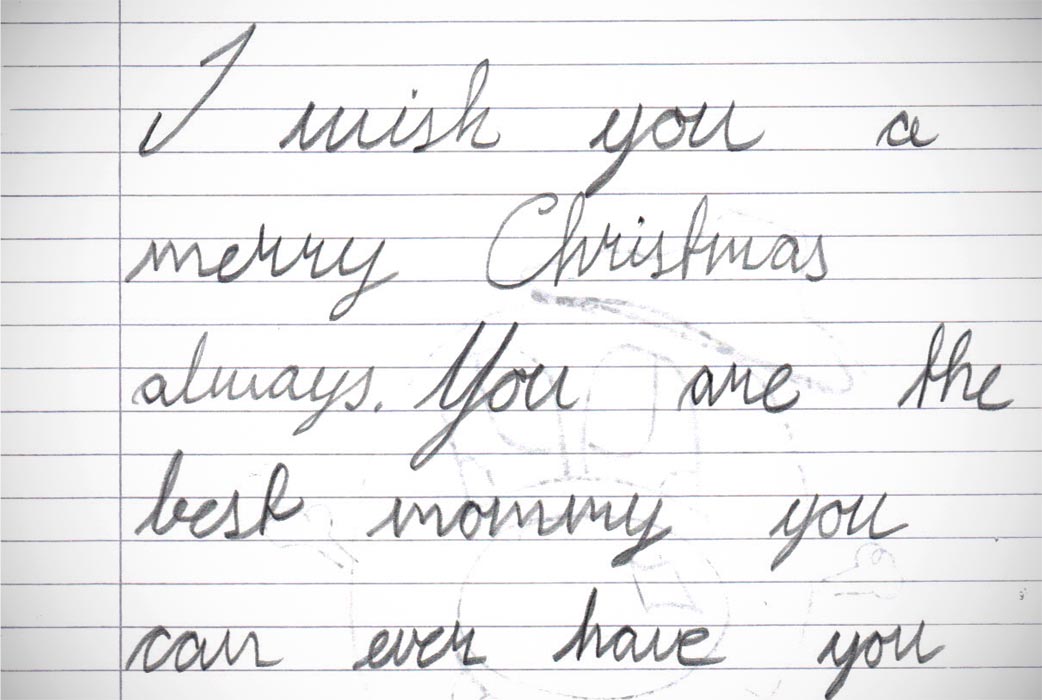 I wish you a
merry Christmas
always. You are the
best mommy you
can ever have you